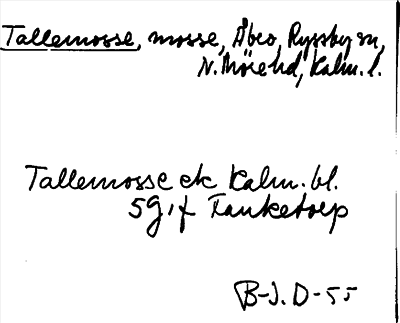 Tallemosse, mosse, Åbro, Ryssby sn,
N. Möre hd, Kalm. l.
Tallemosse ek Kalm. bl.
5G 1f Tanketorp
B-J. D-55